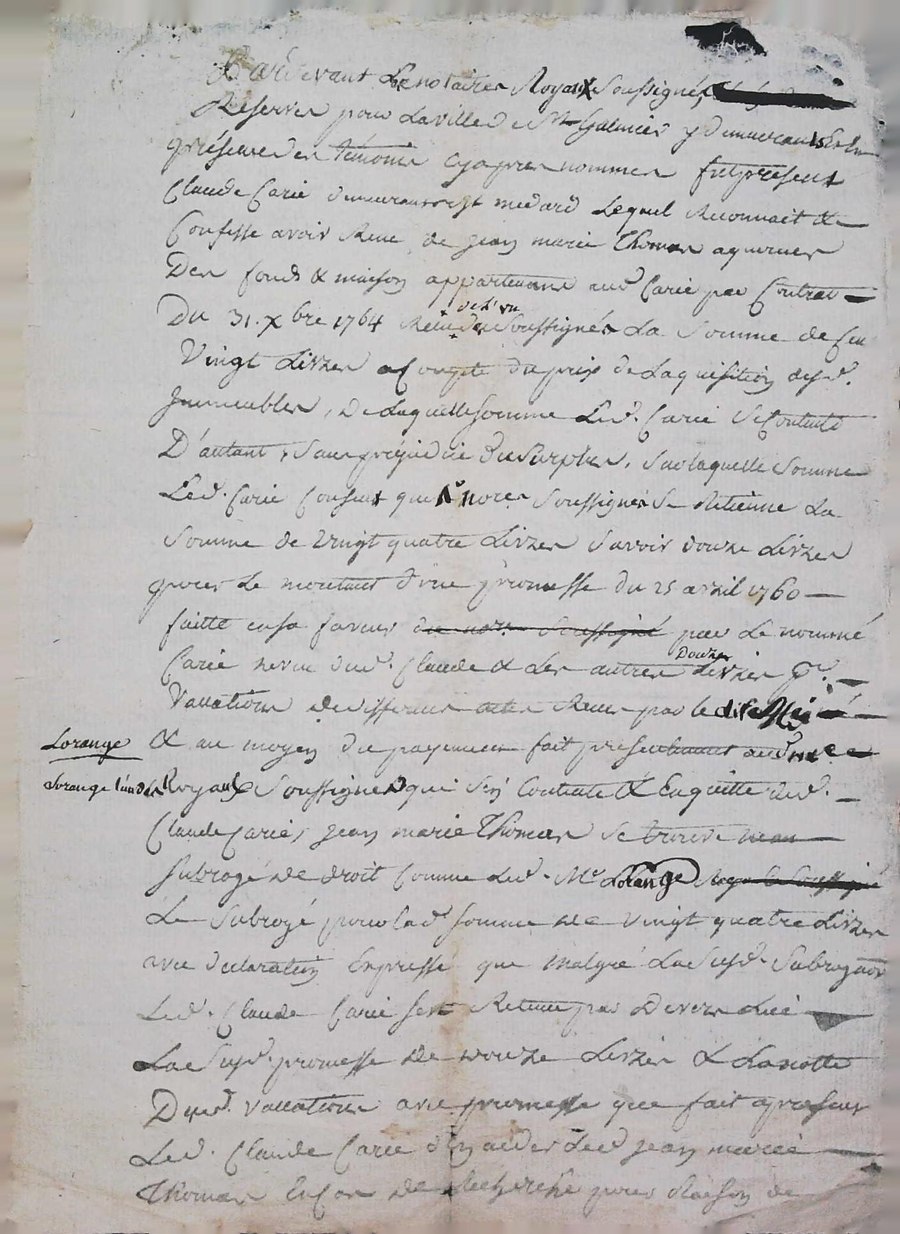 Pardevant Le notaires Royaux Soussignés
Reservés pour La ville de St Galmier y demeurants Et en
présence des témoins cyapres nommes fut présent
Claude Carié demeurant a St medard Lequel Reconnait &
Confesse avoir Receu de jean marie Thomas aquereur
Des fonds & maison appartenans aud Carié par Contrat
Du 31. Xbre 1764 Receu des Soussignés La Somme de
Vingt Livres a Compte du prix de Laquisition desd.
Immeubles, De Laquelle somme Led. Carié Se Contente
D'autant, Sans préjudice du Surplus, Sur laquelle Somme
Led. Carié Consent que nores Soussignés Se Retienne La
Somme de Vingt quatre Livres Savoir douze Livres
pour Le montant d'une promesse du 25 avril 1760
faitte en sa faveur du nore. Soussigné par Le nommé
Carié neveu dud. Claude & Les autres Douze Livres pr.
Vacations de differens actes Receu par le dit
Lorange
& au moyen du payement fait presentement aud
Lorange l'un des
Royaux Soussignes qui S'en Contente & En quitte Led.
Claude Carié, jean marie Thomas Se trouve
Subrogé de droit Comme Led. Me Lorange Soussigné
Le Subrogé pour lad somme de vingt quatre Livres
avec declaration Expresse que malgré La Susd. Subrogation
Led. Claude Carié Sest Retenu par Devers Lui
La Susd. promesse de douze Livres & La notte
Desd. Vacations avec promesse que fait apresent
Led. Claude Carié d'En aider Led jean marie
Thomas En Cas de Recherche pour Raison de